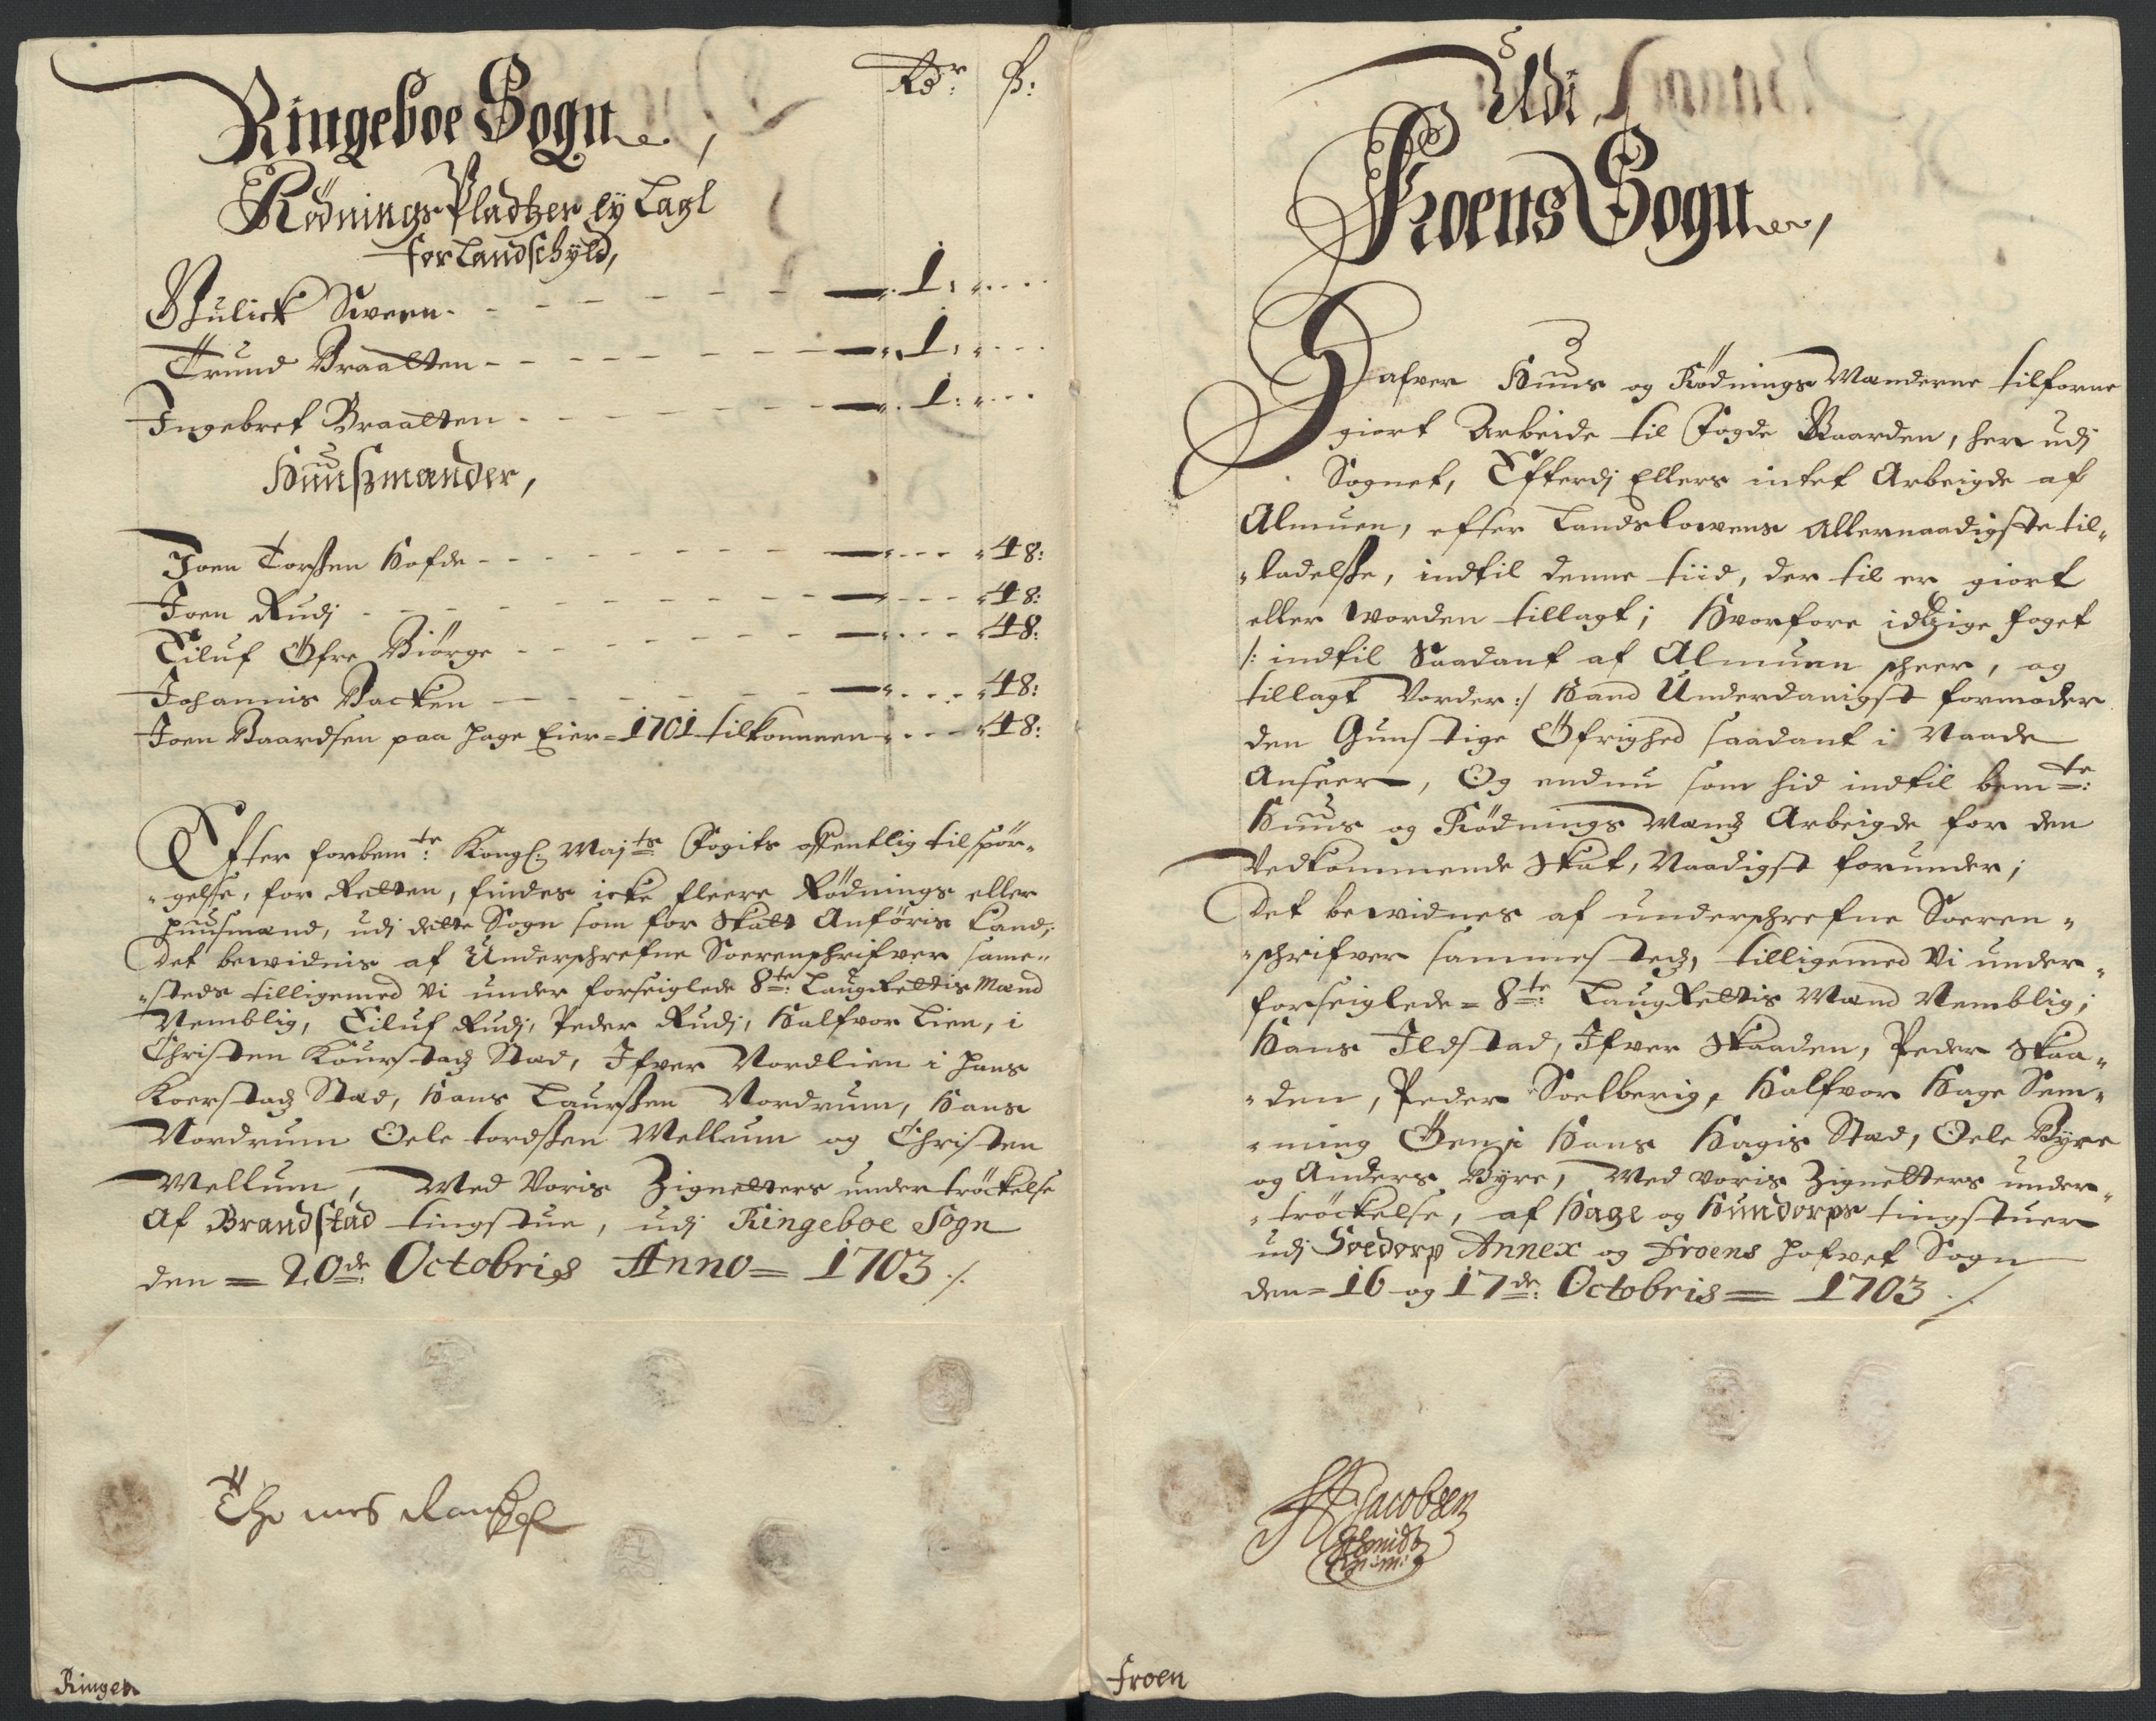 Rdr: ß:
Ringeboe Sogn
Rödnings Pladtzer ey Lagl
for Landschyld,
Gulick Sween - 1:
Trund Braatten - 1:
Ingebret Braatten - 1:
Huußmænder,
Joen Torßen Hofde - 48:
Joen Rudj - 48:
Eiluf Öfre Biörge - 48:
Johannis Backen - 48:
Joen Baardsen paa Hage Eier = 1701 tilkommen - 48:
Efter forbemte: Kongl: Majts Fogits offentlig tilspör-
gelße, for Retten, findes icke fleere Rödnings eller
Huusmænd, udj dette Sogn som for Skatt Anföris kand;
Det bewidnis af Underschrefne Sorenschrifver same-
steds tilligemed Vi under forseiglede 8te: LaugRettis Mænd
Nemblig, Eiluf Rudj, Peder Rudj, Halfvor Lien, i
Christen Kourstadz Stæd, Ifver Nordlien i Hans
Koerstadz Stæd, Hans Laurßen Nordrum, Hans
Nordrum Oele tordßen Mellum og Christen
Mellum, Med Voris Zignetters undertröckelse
Af Brandstad tingstue, udj Ringeboe Sogn
den = 20de: Octobris Anno = 1703 ./.
Thomes
Ringeb
Udi
Froens Sogn
Hafver Huus og Rödnings Mænderne tilforne
giort Arbeide til Fogde Gaarden, her udj
Sognet, Efterdj Ellers intet Arbeigde af
Almuen, efter Landslowens Allernaadigste til-
ladelße, indtil denne tiid, der til er giort
eller worden tillagt; Hvorfore idtzige foget
/: indtil Saadant af Almuen scheer, og
tillagt Vorder :/ Hand Underdanigst formoder
den Gunstige Öfrighed saadant i Naade
Anseer, Og endnu som hid indtil bemte:
Huus og Rödnings Mændz Arbeigde for den
Vedkommende Skat, Naadigst forunder;
Det bewidnes af underschrefne Soeren-
schrifver sammestedz, tilligemed Vi under-
forseiglede = 8te: LaugRettis Mænd Nemblig;
Hans Ildstad, Ifver Skaaden, Peder Skaa-
den, Peder Soelberig, Halfvor Hage Sem-
ming Öen i Hans Hagis Stæd, Oele Byre
og Anders Byre, Med voris Zignetters under-
tröckelse, af Hage og Hundorps tingstuer
udj Soedorp Annex og Froens Hofvet Sogn
den = 16 og 17de: Octobris = 1703 ./.
Jacobsen
Schmidt
Froen